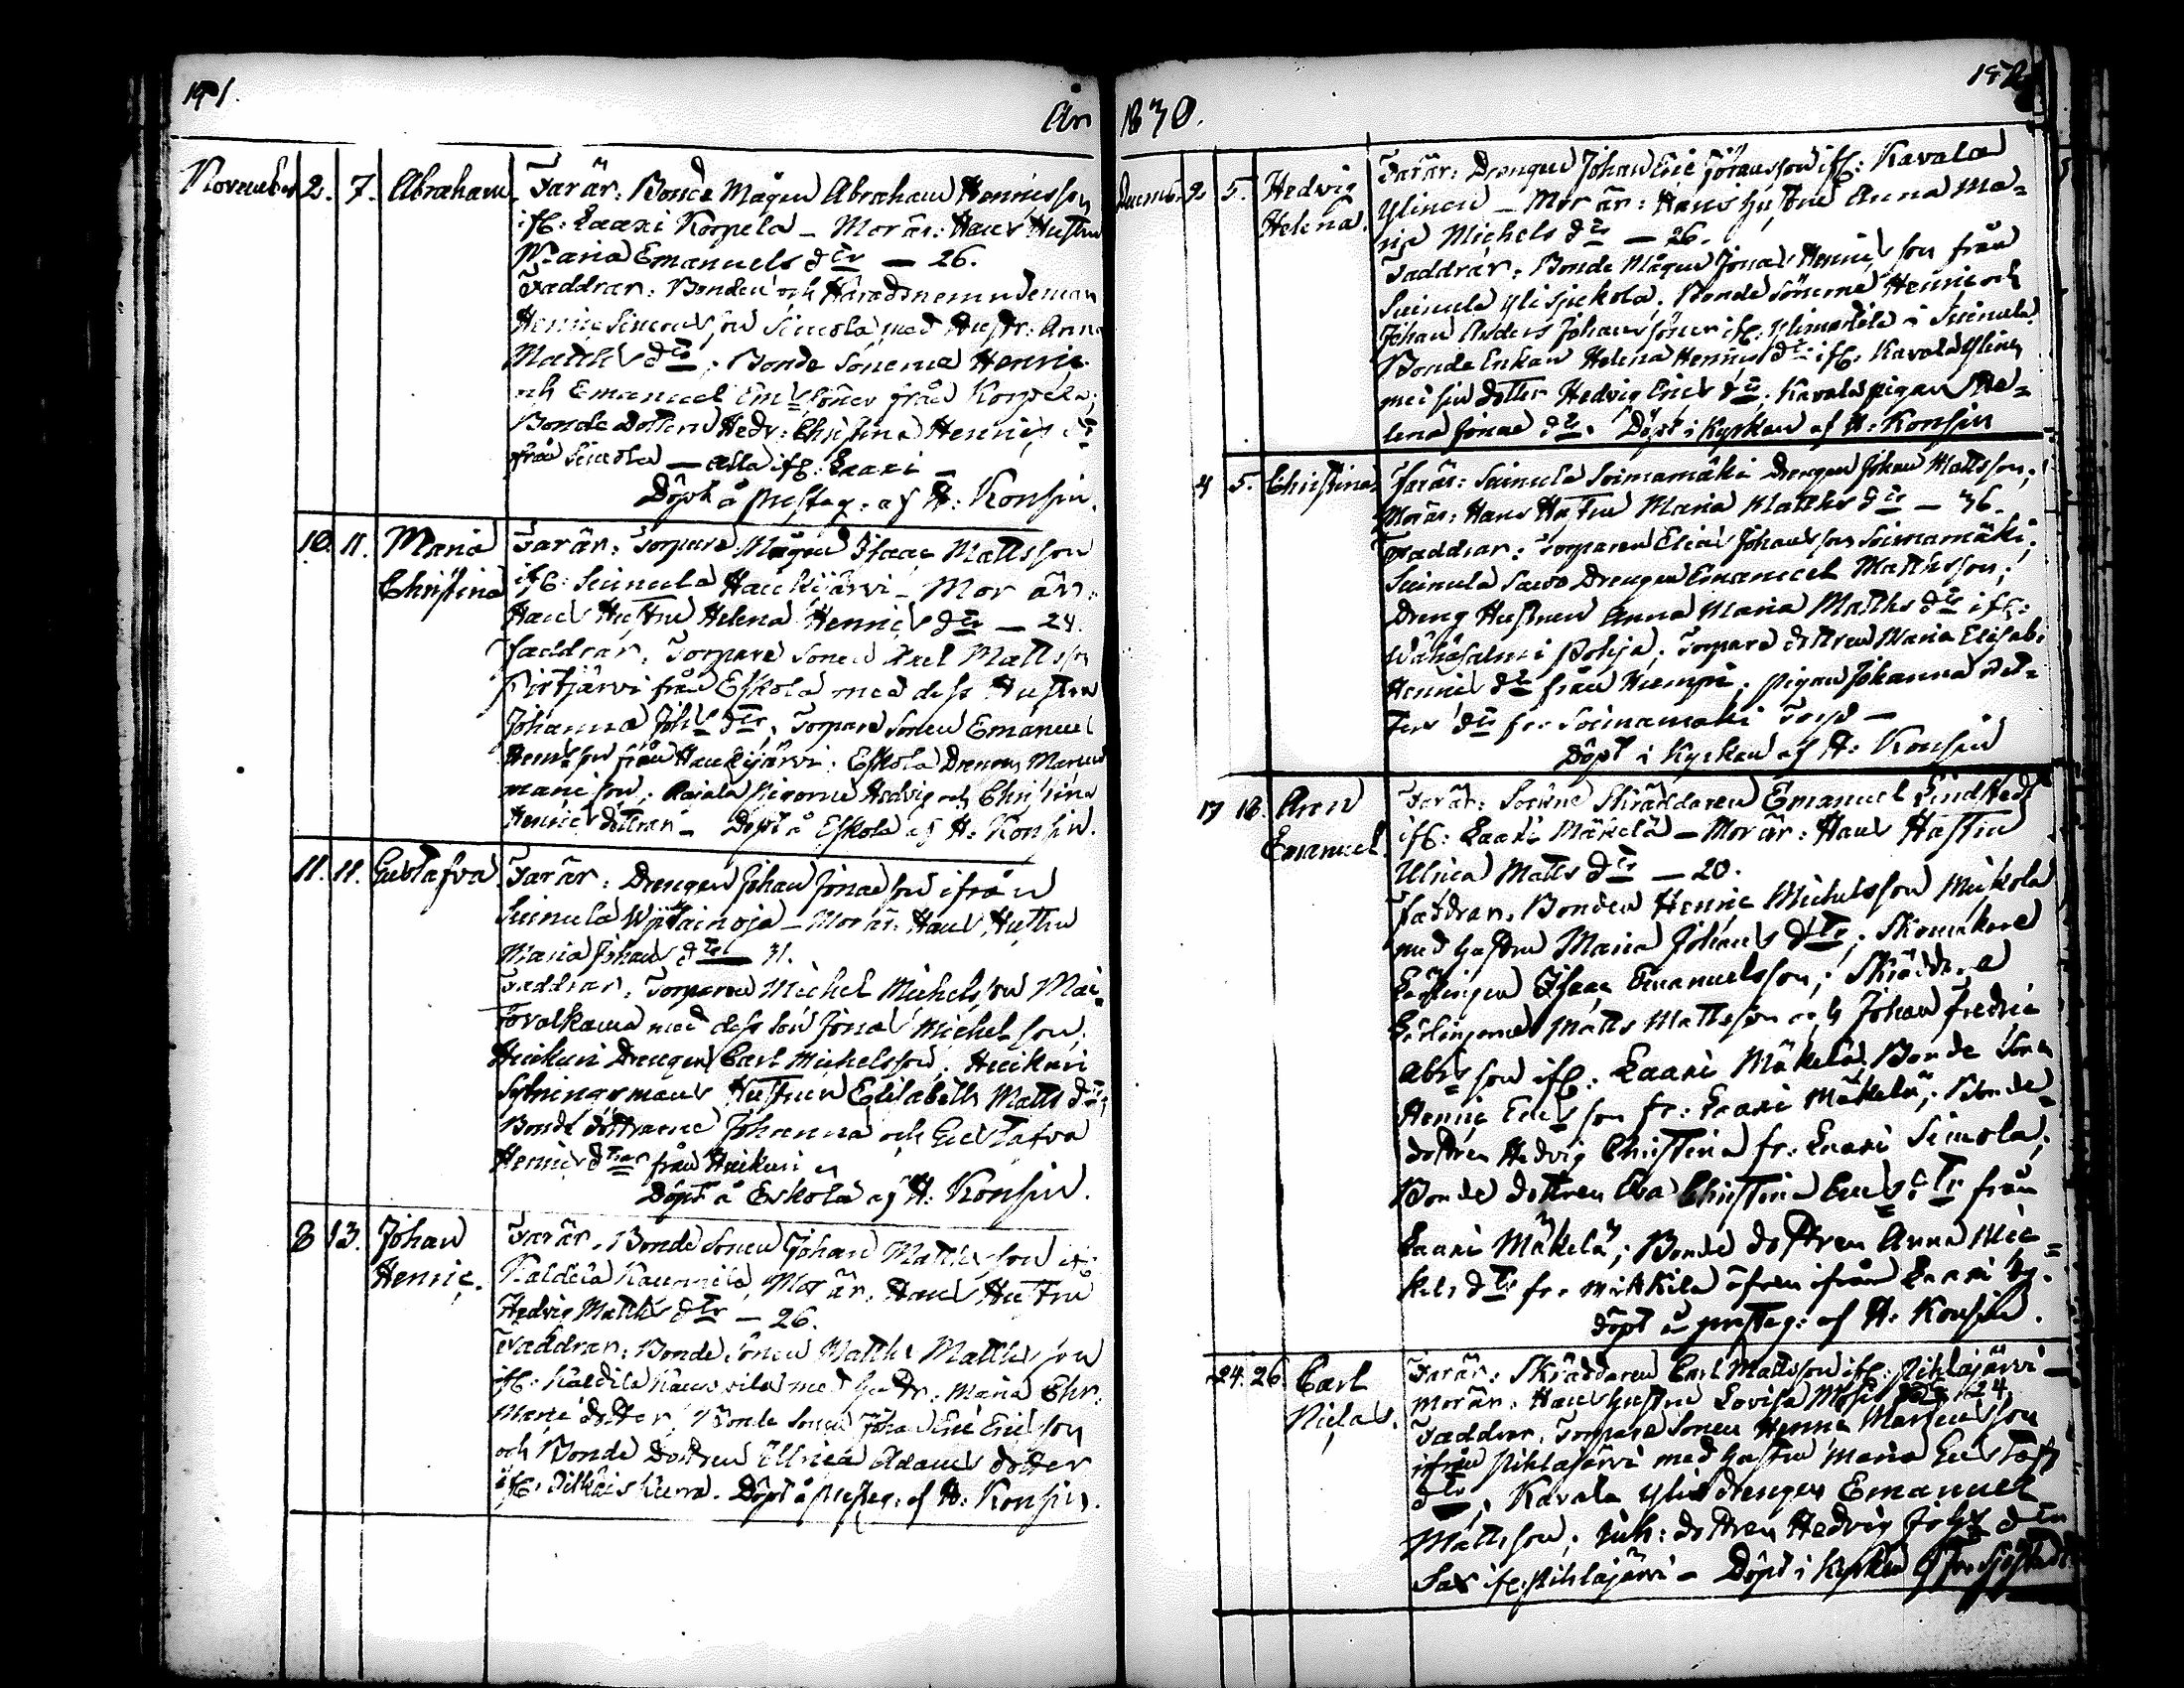 191.
År
November 2. 7. Abraham. Far är: Bonde Mågen Abraham Henricsson
ifr: Laaxi Korpela – Mor är: Hans Hustru
Maria Emanuels dtr — 26.
Faddrar: Bonden och Häradsnemndeman
Henric Simonsson Simola med Hustr: Anna
Matths dtr; Bonde Sönerne Henric
och Emanuel Em:s söner från Korpela;
Bonde Dottren Hedv: Christina Henrics dr
från Simola — alla ifr: Laaxi –
Döpt å Presteg: af H: Konsin.
10. 11. Maria Christina Far är: Torpare Mågen Isaac Mattsson
ifr: Suinula Haukijärvi – Mor är:
Hans Hustru Helena Henrics dtr — 24.
Faddrar: Torpare Sonen Axel Mattsson
Pirtjärvi från Eskola med dess Hustru
Johanna Joh:s dtr; Torpare Sonen Emanuel
Henr:s son från Haukijärvi; Eskola Drengen
son; pigorne Hedvig och Christina
Henrics döttrar – Döpt å Eskola af H: Konsin.
11. 11. Gustafva Far är: Drengen Johan Jonasson ifrån
Suinula – Mor är: Hans Hustru
Maria Johans dtr — 31.
Faddrar: Torparen Michel Michelsson
med dess son Jonas Michelsson;
Huikuri Drengen Carl Michelsson; Huikuri
Sytningsmans Hustrun Elisabeth Matts dtr;
Bonde döttrarne Johanna och Gustafva
Henrics dtrar från Huikuri
Döpt å Eskola af H: Konsin.
8 13. Johan Henric. Far är: Bonde Sonen Johan Matthsson ifr
Mor är: Hans Hustru
Hedvig Matths dtr — 26.
Faddrar: Bonde Sonen Matths Matthsson
med Hustr: Maria Chr:
dotter; Bonde Sonen Johan Eric Ericsson
och Bonde Dottren Ulrica Adams dotter
ifr: Döpt å Presteg: af H: Konsin.
1830.
192
Decemb. 2 5. Hedvig Helena. Far är: Drengen Johan Eric Göransson ifr: Kavala
Ylinen – Mor är: Hans Hustru Anna Ma=
ria Michels dtr — 26.
Faddrar: Bonde Mågen Jonas Henricsson från
Suinula Bonde sönerne Henric och
Johan Anders Johans söner ifr: i Suinula
Bonde Enkan Helena Henrics dtr ifr: Kavala Ylinen
med sin dotter Hedvig Erics dtr. Kavala pigan He=
lena Jonae dtr. Döpt i Kyrkan af H: Konsin
4 5. Christina Far är: Suinula Soimamäki Drengen Johan Mattsson;
Mor är: Hans Hustru Maria Matths dtr — 36.
Faddrar: Torparen Elias Johansson Soimamäki;
Suinula Savo Drengen Emanuel Matthsson;
Dreng Hustrun Anna Maria Matths dtr ifr:
i Pohja; Torpare dottren Maria Elisab:
Henrics dtr från pigan Johanna Pet=
ters dtr fr: Soimamäki Torp —
Döpt i Kyrkan af H: Konsin
17 18. Aron Emanuel. Far är: Sockne Skräddaren Emanuel Lindstedt
ifr: Laaxi Mäkelä – Mor är: Hans Hustru
Ulrica Matts dtr — 20.
Faddrar: Bonden Henric Michelsson Mickola
med hustru Maria Johans dtr; Skomakare
Lärlingen Isaac Emanuelsson; Skräddare
Lärlingarne Matts Mattsson och Johan Fredric
Abr:s son ifr: Laaxi Mäkelä; Bonde Sonen
Henric Erics son fr: Laaxi Mäkelä; Bonde=
dottren Hedvig Christina fr: Laaxi Simola;
Bonde dottren Eva Christina Erics dtr från
Laaxi Mäkelä; Bonde dottren Anna Mic=
kels dtr fr: Mikkila äfven ifrån Laaxi by.
Döpt å presteg: af H: Konsin.
24. 26. Carl Niclas. Far är: Skräddaren Carl Mattsson ifr: Pihlajärvi —
mor är: Hans hustru Lovisa dtr 24.
Faddrar: Torpare Sonen Henric Mårtensson
ifrån Pihlajärvi med hustru Maria Gustafs
dtr; Kavala Ylis Drengen Emanuel
Mattsson; Inh: dottren Hedvig Joh:s dtr
Sax ifr: Pihlajärvi – Döpt i Kyrkan af